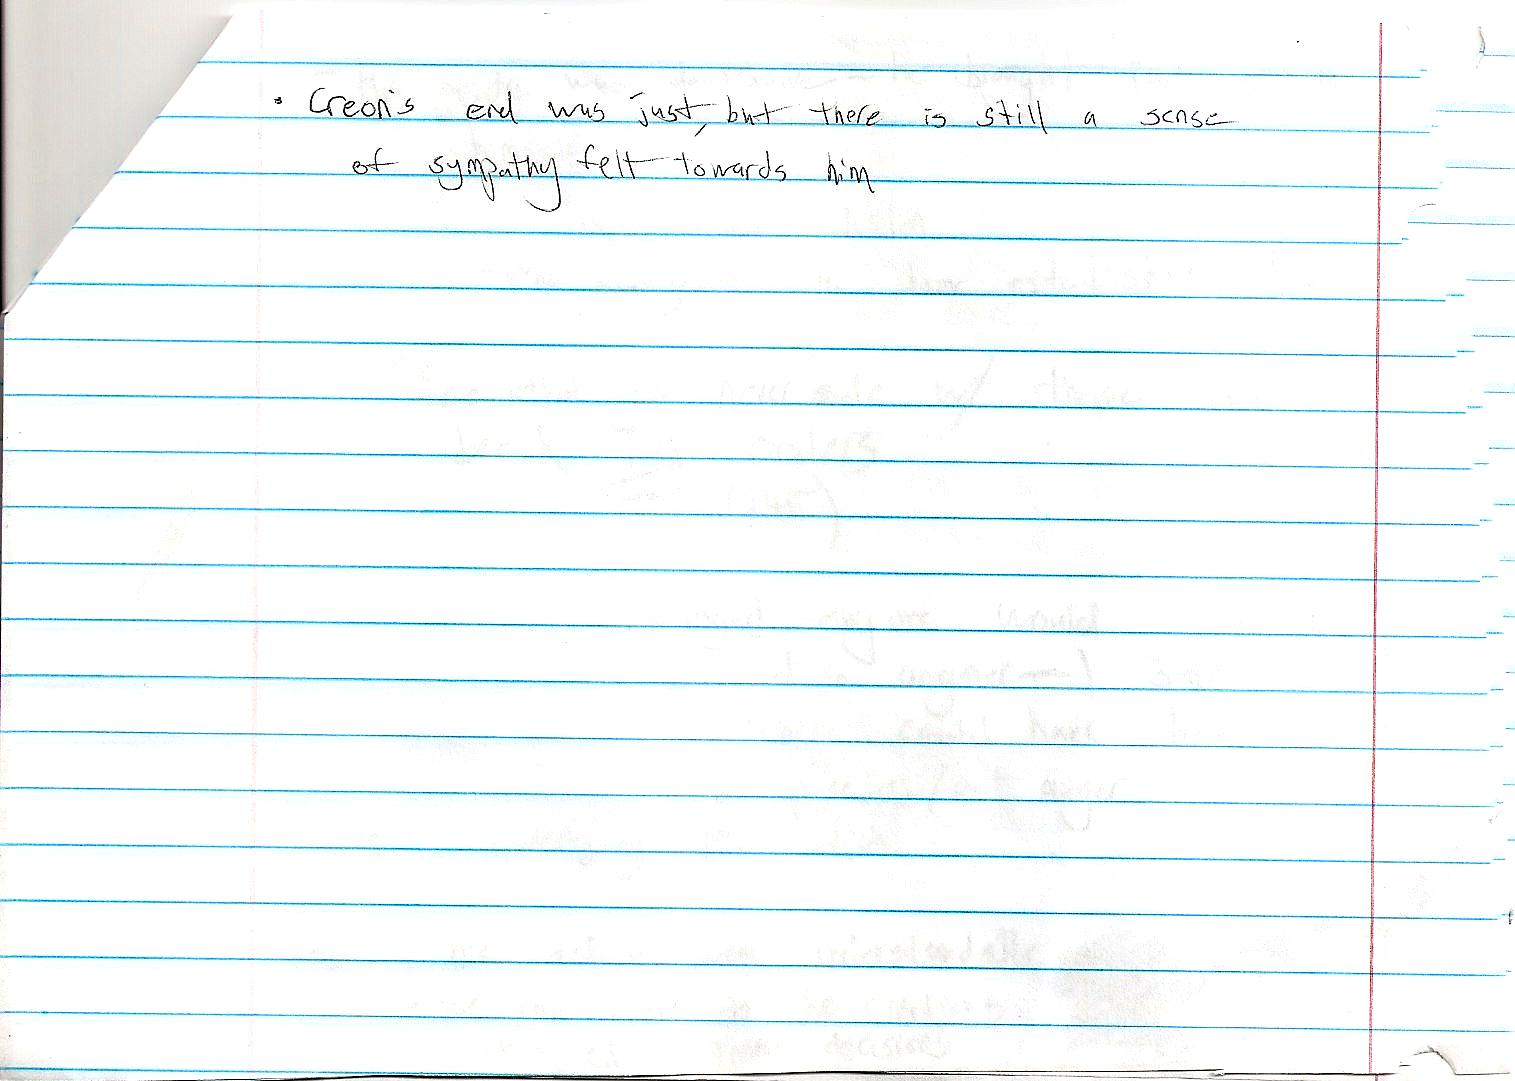 • Creon's end was just, but there is still a sense
of sympathy felt towards him